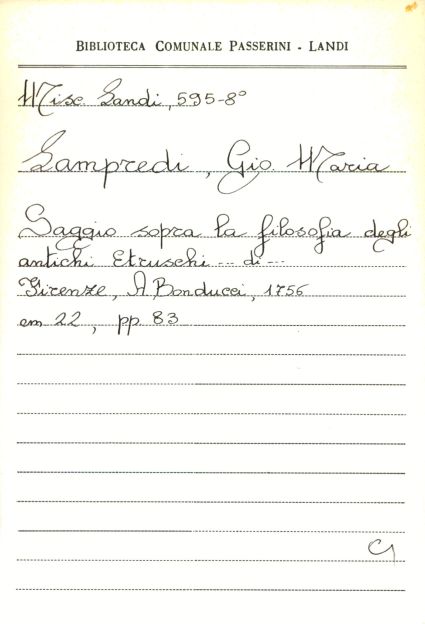 BIBLIOTECA COMUNALE PASSERINI - LANDI
Misc. Landi, 595-8°
Lampredi, Gio. Maria
Saggio sopra la filosofia degli
antichi Etruschi ... di ...
Firenze, A Bonducci, 1756
cm 22, pp. 83